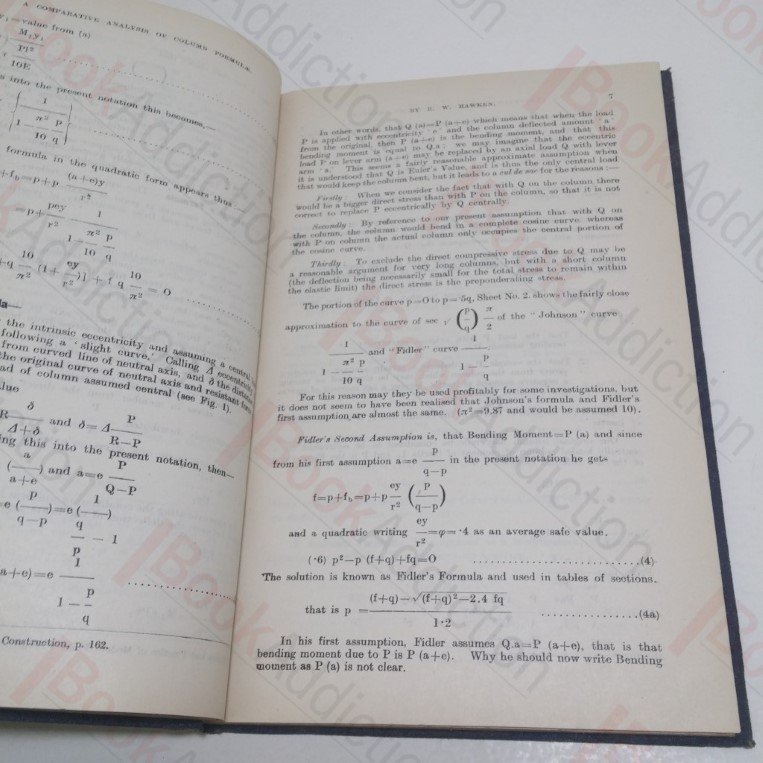 A COMPARATIVE ANALYSIS OF COLUMN FORMULÆ.
value from (a)
M₁y₁
Pl²
10E
into the present notation this becomes,—
1
1 − π²/10 p/q
formula in the quadratic form appears thus
+f_b=p+p (a+e)y/r²
=p+ pey/r² 1/(1 − π²/10 p/q)
+q 10/π² (1+ ey/r²)] + f q 10/π² = O
the intrinsic eccentricity and assuming a central
following a 'slight curve.' Calling Δ eccentricity
from curved line of neutral axis, and δ the distance
the original curve of neutral axis and resistant
ad of column assumed central (see Fig. 1).
δ/(Δ+δ) and δ=Δ P/(R−P)
ing this into the present notation, then—
a/(a+e) and a=e P/(Q−P)
=e ( p/(q−p) )=e ( 1/(q/p − 1) )
a+e)=e 1/(1 − p/q)
Construction, p. 162.
BY R. W. HAWKEN. 7
In other words, that Q (a)=P (a+e) which means that when the load
P is applied with eccentricity 'e' and the column deflected amount 'a'
from the original, then P (a+e) is the bending moment, and that this
bending moment is equal to Q.a; we may imagine that the eccentric
load P on lever arm (a+e) may be replaced by an axial load Q with lever
arm 'a.' This seems a fairly reasonable approximate assumption when
it is understood that Q is Euler's Value, and is thus the only central load
that would keep the column bent, but it leads to a cul de sac for the reasons:—
Firstly: When we consider the fact that with Q on the column there
would be a bigger direct stress than with P on the column, so that it is not
correct to replace P eccentrically by Q centrally.
Secondly: By reference to our present assumption that with Q on
the column, the column would bend in a complete cosine curve, whereas
with P on column the actual column only occupies the central portion of
the cosine curve.
Thirdly: To exclude the direct compressive stress due to Q may be
a reasonable argument for very long columns, but with a short column
(the deflection being necessarily small for the total stress to remain within
the elastic limit) the direct stress is the preponderating stress.
The portion of the curve p=O to p=·5q, Sheet No. 2, shows the fairly close
approximation to the curve of sec √(p/q) π/2 of the "Johnson" curve
1/(1 − π²/10 p/q) and "Fidler" curve 1/(1 − p/q).
For this reason may they be used profitably for some investigations, but
it does not seem to have been realised that Johnson's formula and Fidler's
first assumption are almost the same. (π²=9.87 and would be assumed 10).
Fidler's Second Assumption is, that Bending Moment=P (a) and since
from his first assumption a=e p/(q−p) in the present notation he gets
f=p+f_b=p+p ey/r² ( p/(q−p) )
and a quadratic writing ey/r² =φ=·4 as an average safe value.
(·6) p²−p (f+q)+fq=O ........................(4)
The solution is known as Fidler's Formula and used in tables of sections.
that is p = ((f+q)−√(f+q)²−2.4 fq)/1·2 ........................(4a)
In his first assumption, Fidler assumes Q.a=P (a+e), that is that
bending moment due to P is P (a+e). Why he should now write Bending
moment as P (a) is not clear.